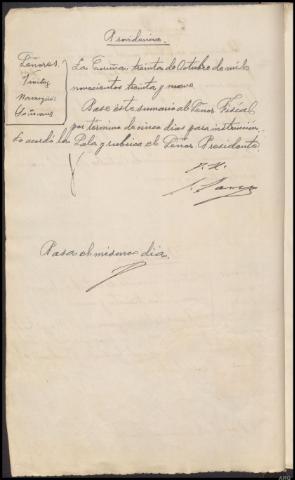 Providencia.
Señores.
La Coruña treinta de Octubre de mil
novecientos treinta y nueve
Pase este sumario al Señor Fiscal
por término de cinco dias para instrucción.
Lo acordó la Sala y rubrica el Señor Presidente.
Pasa el mismo dia.